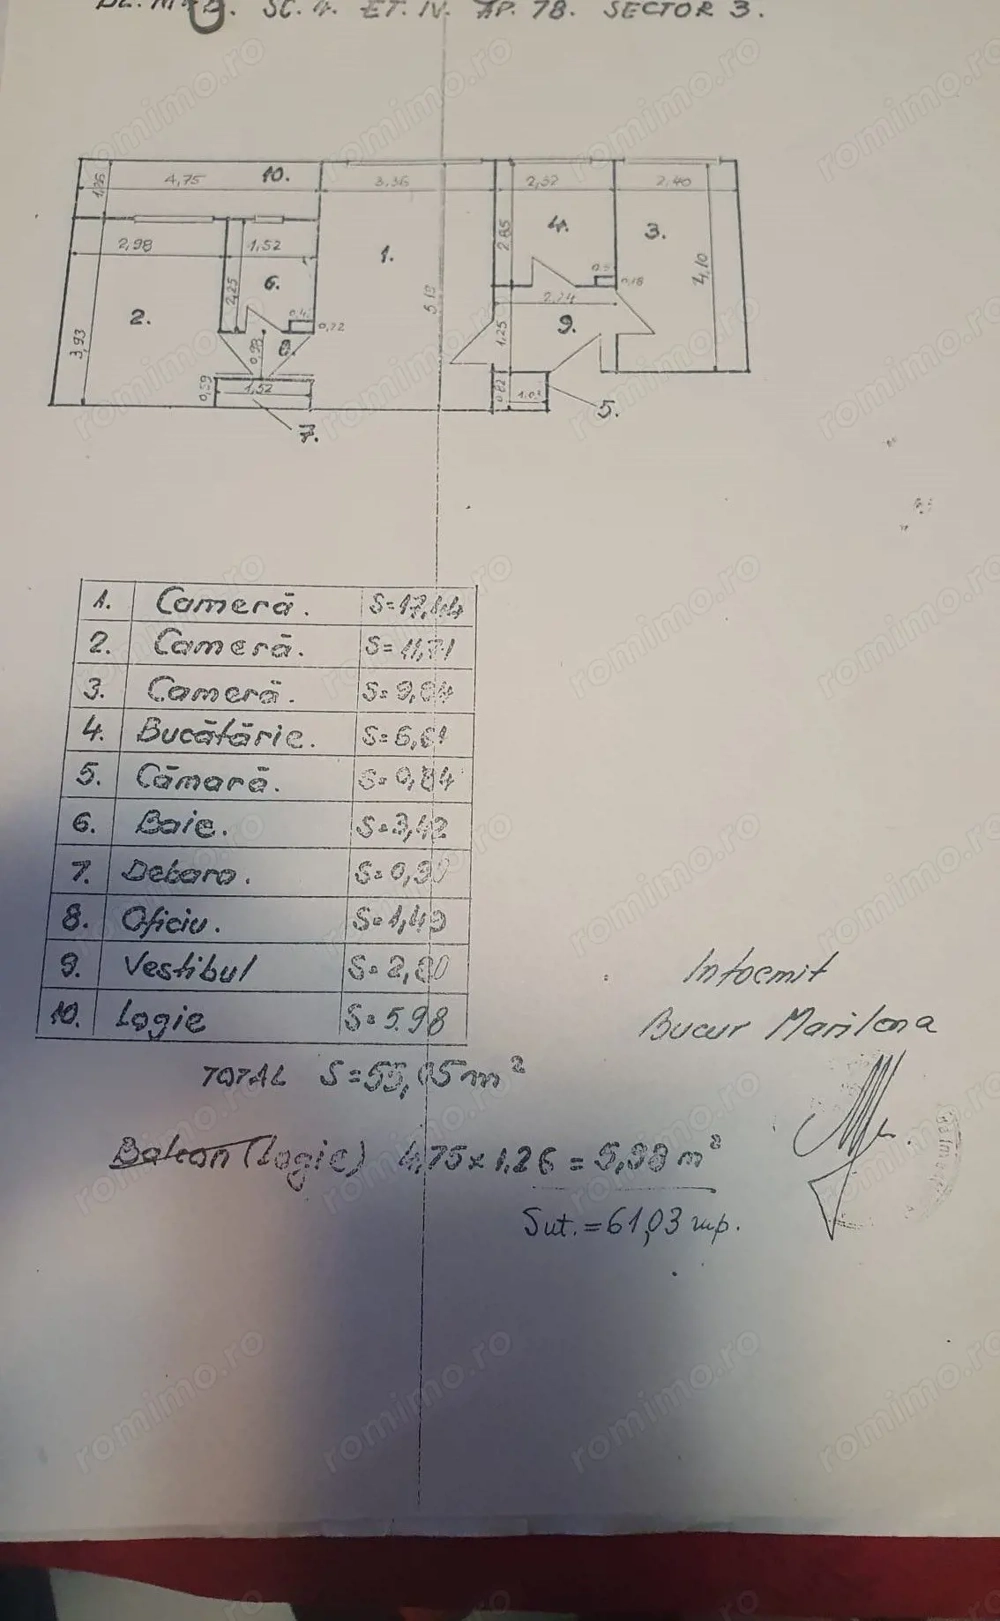 SC. 4. ET. IV. AP. 78. SECTOR 3.
4,75 10. 3,36 2,52 2,40
1,26
2,98 1,52 1. 2,85 4. 3.
2,25 6. 4,10
2. 2,24 0,18
3,93 5,19 9.
0,98 8. 0,22 1,25
0,59 1,52 0,82 5.
7.
1. Cameră. S=17,44
2. Cameră. S= 11,71
3. Cameră. S= 9,84
4. Bucătărie. S= 6,61
5. Cămară. S= 0,84
6. Baie. S=3,42
7. Debara. S= 0,90
8. Oficiu. S=1,49
9. Vestibul S= 2,80
10. Logie S= 5.98
TOTAL S=55,05 m²
Balcon (Logie) 4,75 x 1,26 = 5,98 m²
Sut. = 61,03 mp.
Intocmit
Bucur Marilena
romimo.ro